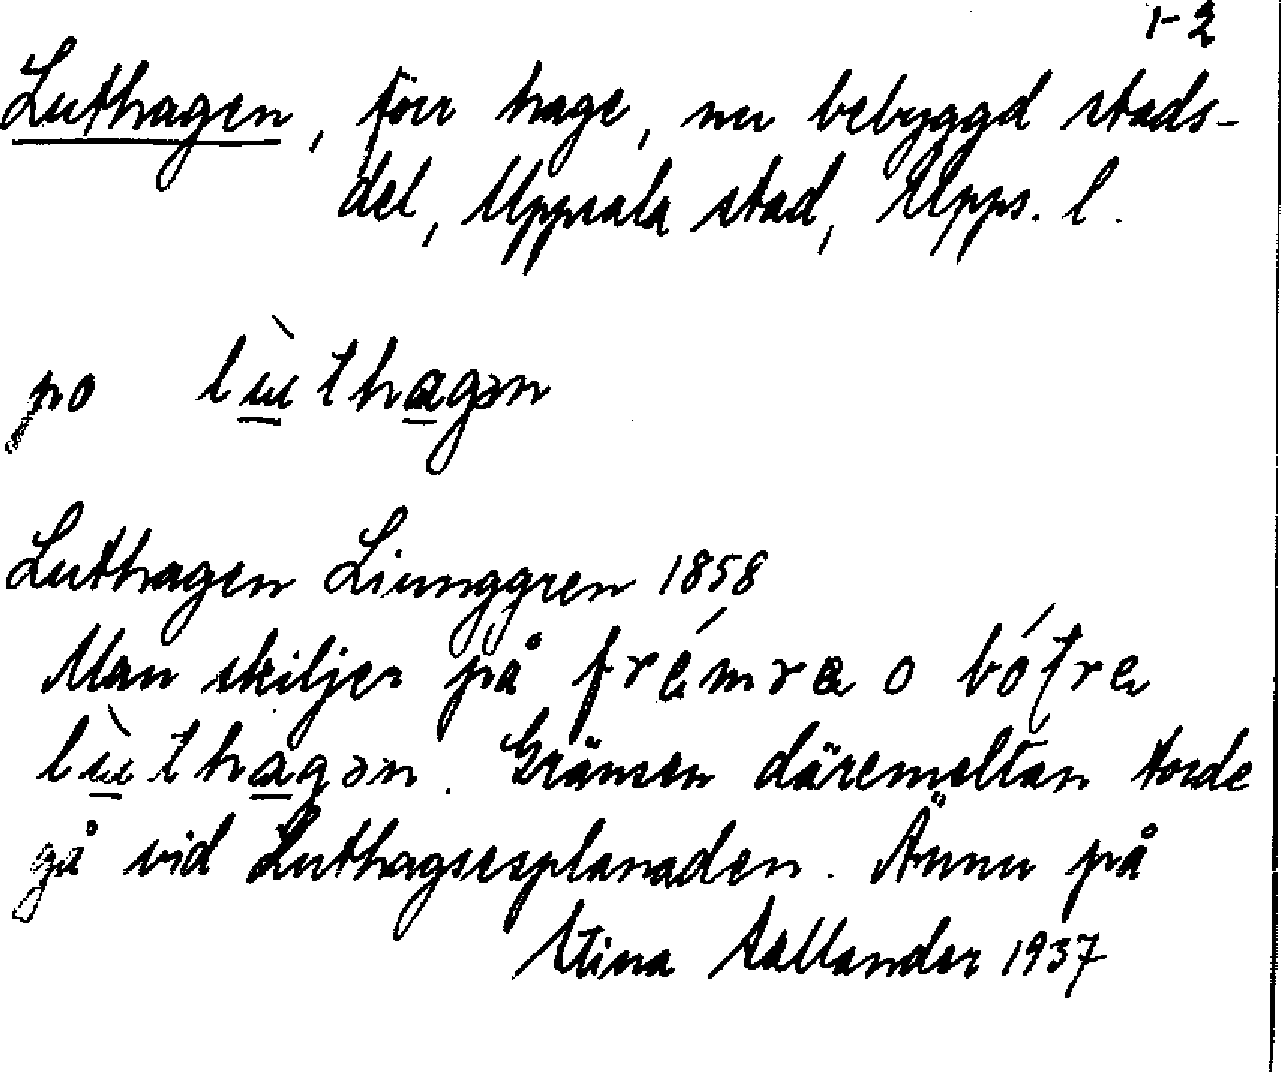 1-2
Luthagen, förr hage, nu bebyggd stads-
del, Uppsala stad, Upps. l.
po lùthagən
Luthagen Liunggren 1858
Man skiljer på frǽmra o bótra
lùthagən. Gränsen däremellan torde
gå vid Luthagsesplanaden. Ännu på
Stina 1937